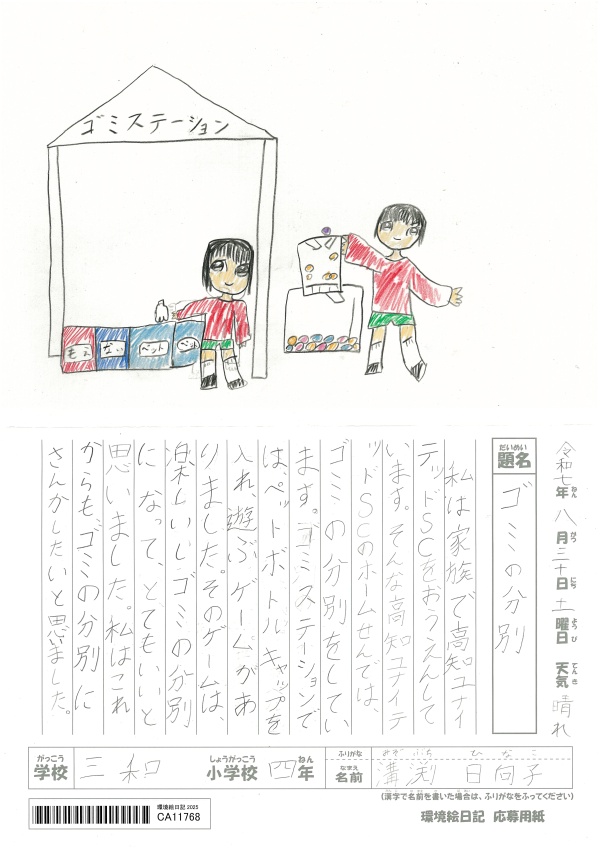 ゴミステーション
もえ
ない
ペット
ペット
令和七年ねん八月がつ三十日にち土曜日ようび天気てんき晴れ
題名だいめい
ゴミの分別
私は家族で高知ユナイ
テッドSCをおうえんして
います。そんな高知ユナイテ
ッドSCのホームせんでは、
ゴミの分別をしてい
ます。ゴミステーションで
は、ペットボトルキャップを
入れ、遊ぶゲームがあ
りました。そのゲームは、
楽しいしゴミの分別
になって、とてもいいと
思いました。私はこれ
からも、ゴミの分別に
さんかしたいと思いました。
学校がっこう 三和 小学校しょうがっこう 四年ねん
ふりがな みぞ ぶち ひ な こ
名前なまえ 溝渕 日向子
(漢字で名前を書いた場合は、ふりがなをふってください)
環境絵日記 2025
CA11768
環境絵日記 応募用紙